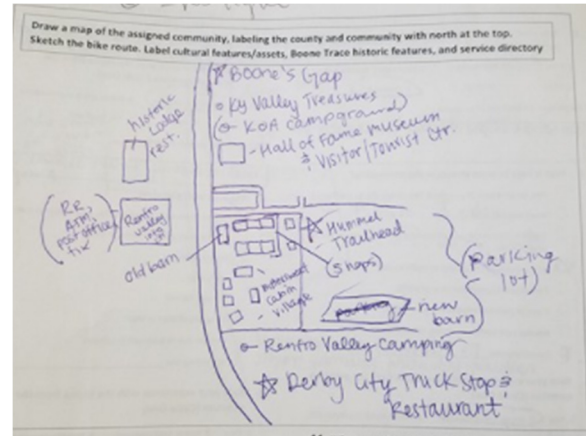 Draw a map of the assigned community, labeling the county and community with north at the top.
Sketch the bike route. Label cultural features/assets, Boone Trace historic features, and service directory
Boone's Gap
Ky Valley Treasures
KOA Campground)
Hall of Fame Museum
& Visitor/Tourist Ctr.
historic
Lodge
rest.
RR,
ATM,
post office,
tix
Renfro
Valley
old barn
Hummel
Trailhead
(shops)
cabin
village
(parking
lot)
new
barn
Renfro Valley Camping
Derby City Truck Stop &
Restaurant